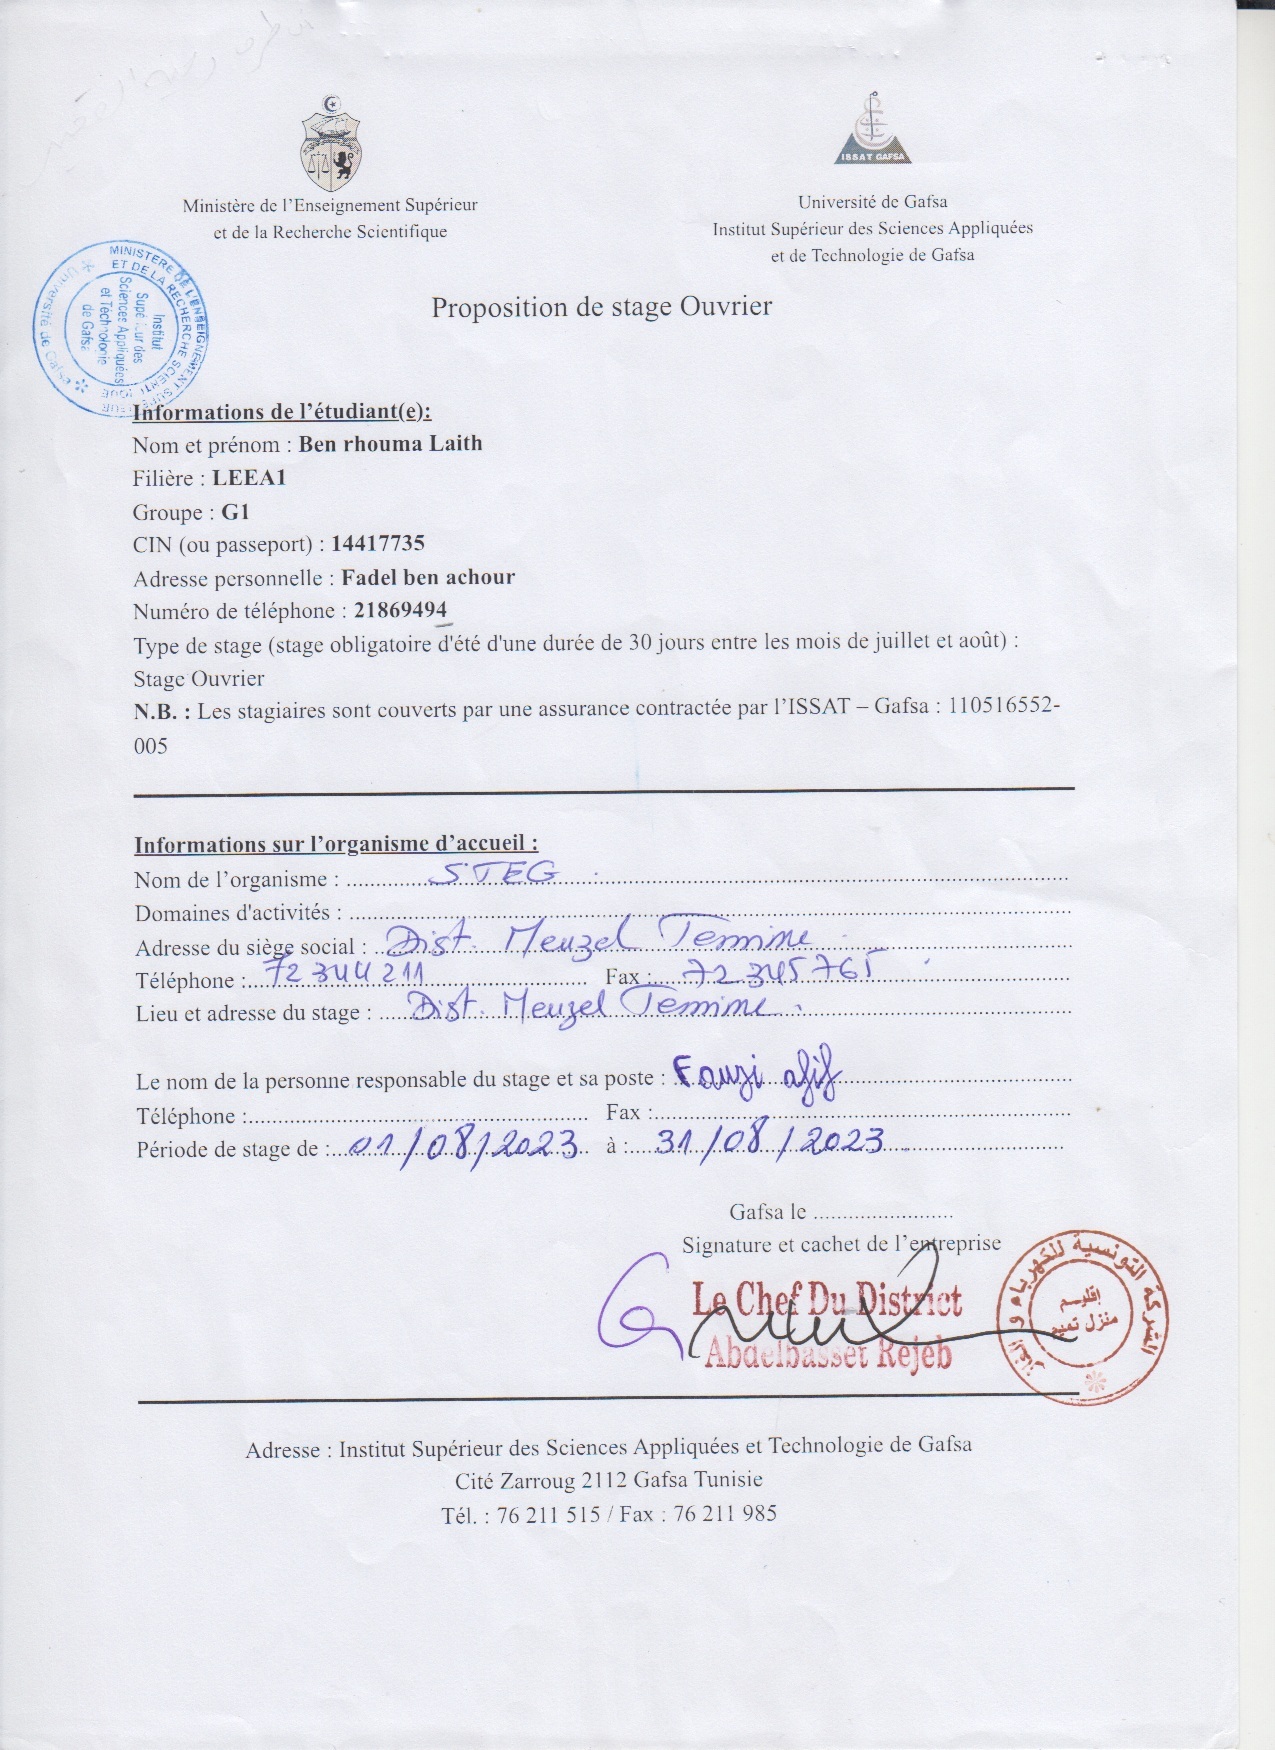 ISSAT GAFSA
Ministère de l'Enseignement Supérieur
et de la Recherche Scientifique
Université de Gafsa
Institut Supérieur des Sciences Appliquées
et de Technologie de Gafsa
MINISTERE DE L'ENSEIGNEMENT SUPERIEUR
ET DE LA RECHERCHE SCIENTIFIQUE
Université de Gafsa
Institut
Supérieur des
Sciences Appliquées
et Technologie
de Gafsa
Proposition de stage Ouvrier
Informations de l'étudiant(e):
Nom et prénom : Ben rhouma Laith
Filière : LEEA1
Groupe : G1
CIN (ou passeport) : 14417735
Adresse personnelle : Fadel ben achour
Numéro de téléphone : 21869494
Type de stage (stage obligatoire d'été d'une durée de 30 jours entre les mois de juillet et août) :
Stage Ouvrier
N.B. : Les stagiaires sont couverts par une assurance contractée par l'ISSAT – Gafsa : 110516552-
005
Informations sur l'organisme d'accueil :
Nom de l'organisme : STEG
Domaines d'activités :
Adresse du siège social : Dist. Menzel Temime
Téléphone : 72 344 211 Fax : 72 345 765
Lieu et adresse du stage : Dist. Menzel Temime
Le nom de la personne responsable du stage et sa poste : Fauzi afif
Téléphone : Fax :
Période de stage de : 01/08/2023 à : 31/08/2023
Gafsa le
Signature et cachet de l'entreprise
Le Chef Du District
Abdelbasset Rejeb
الشركة التونسية للكهرباء و الغاز
إقليم
منزل تميم
Adresse : Institut Supérieur des Sciences Appliquées et Technologie de Gafsa
Cité Zarroug 2112 Gafsa Tunisie
Tél. : 76 211 515 / Fax : 76 211 985